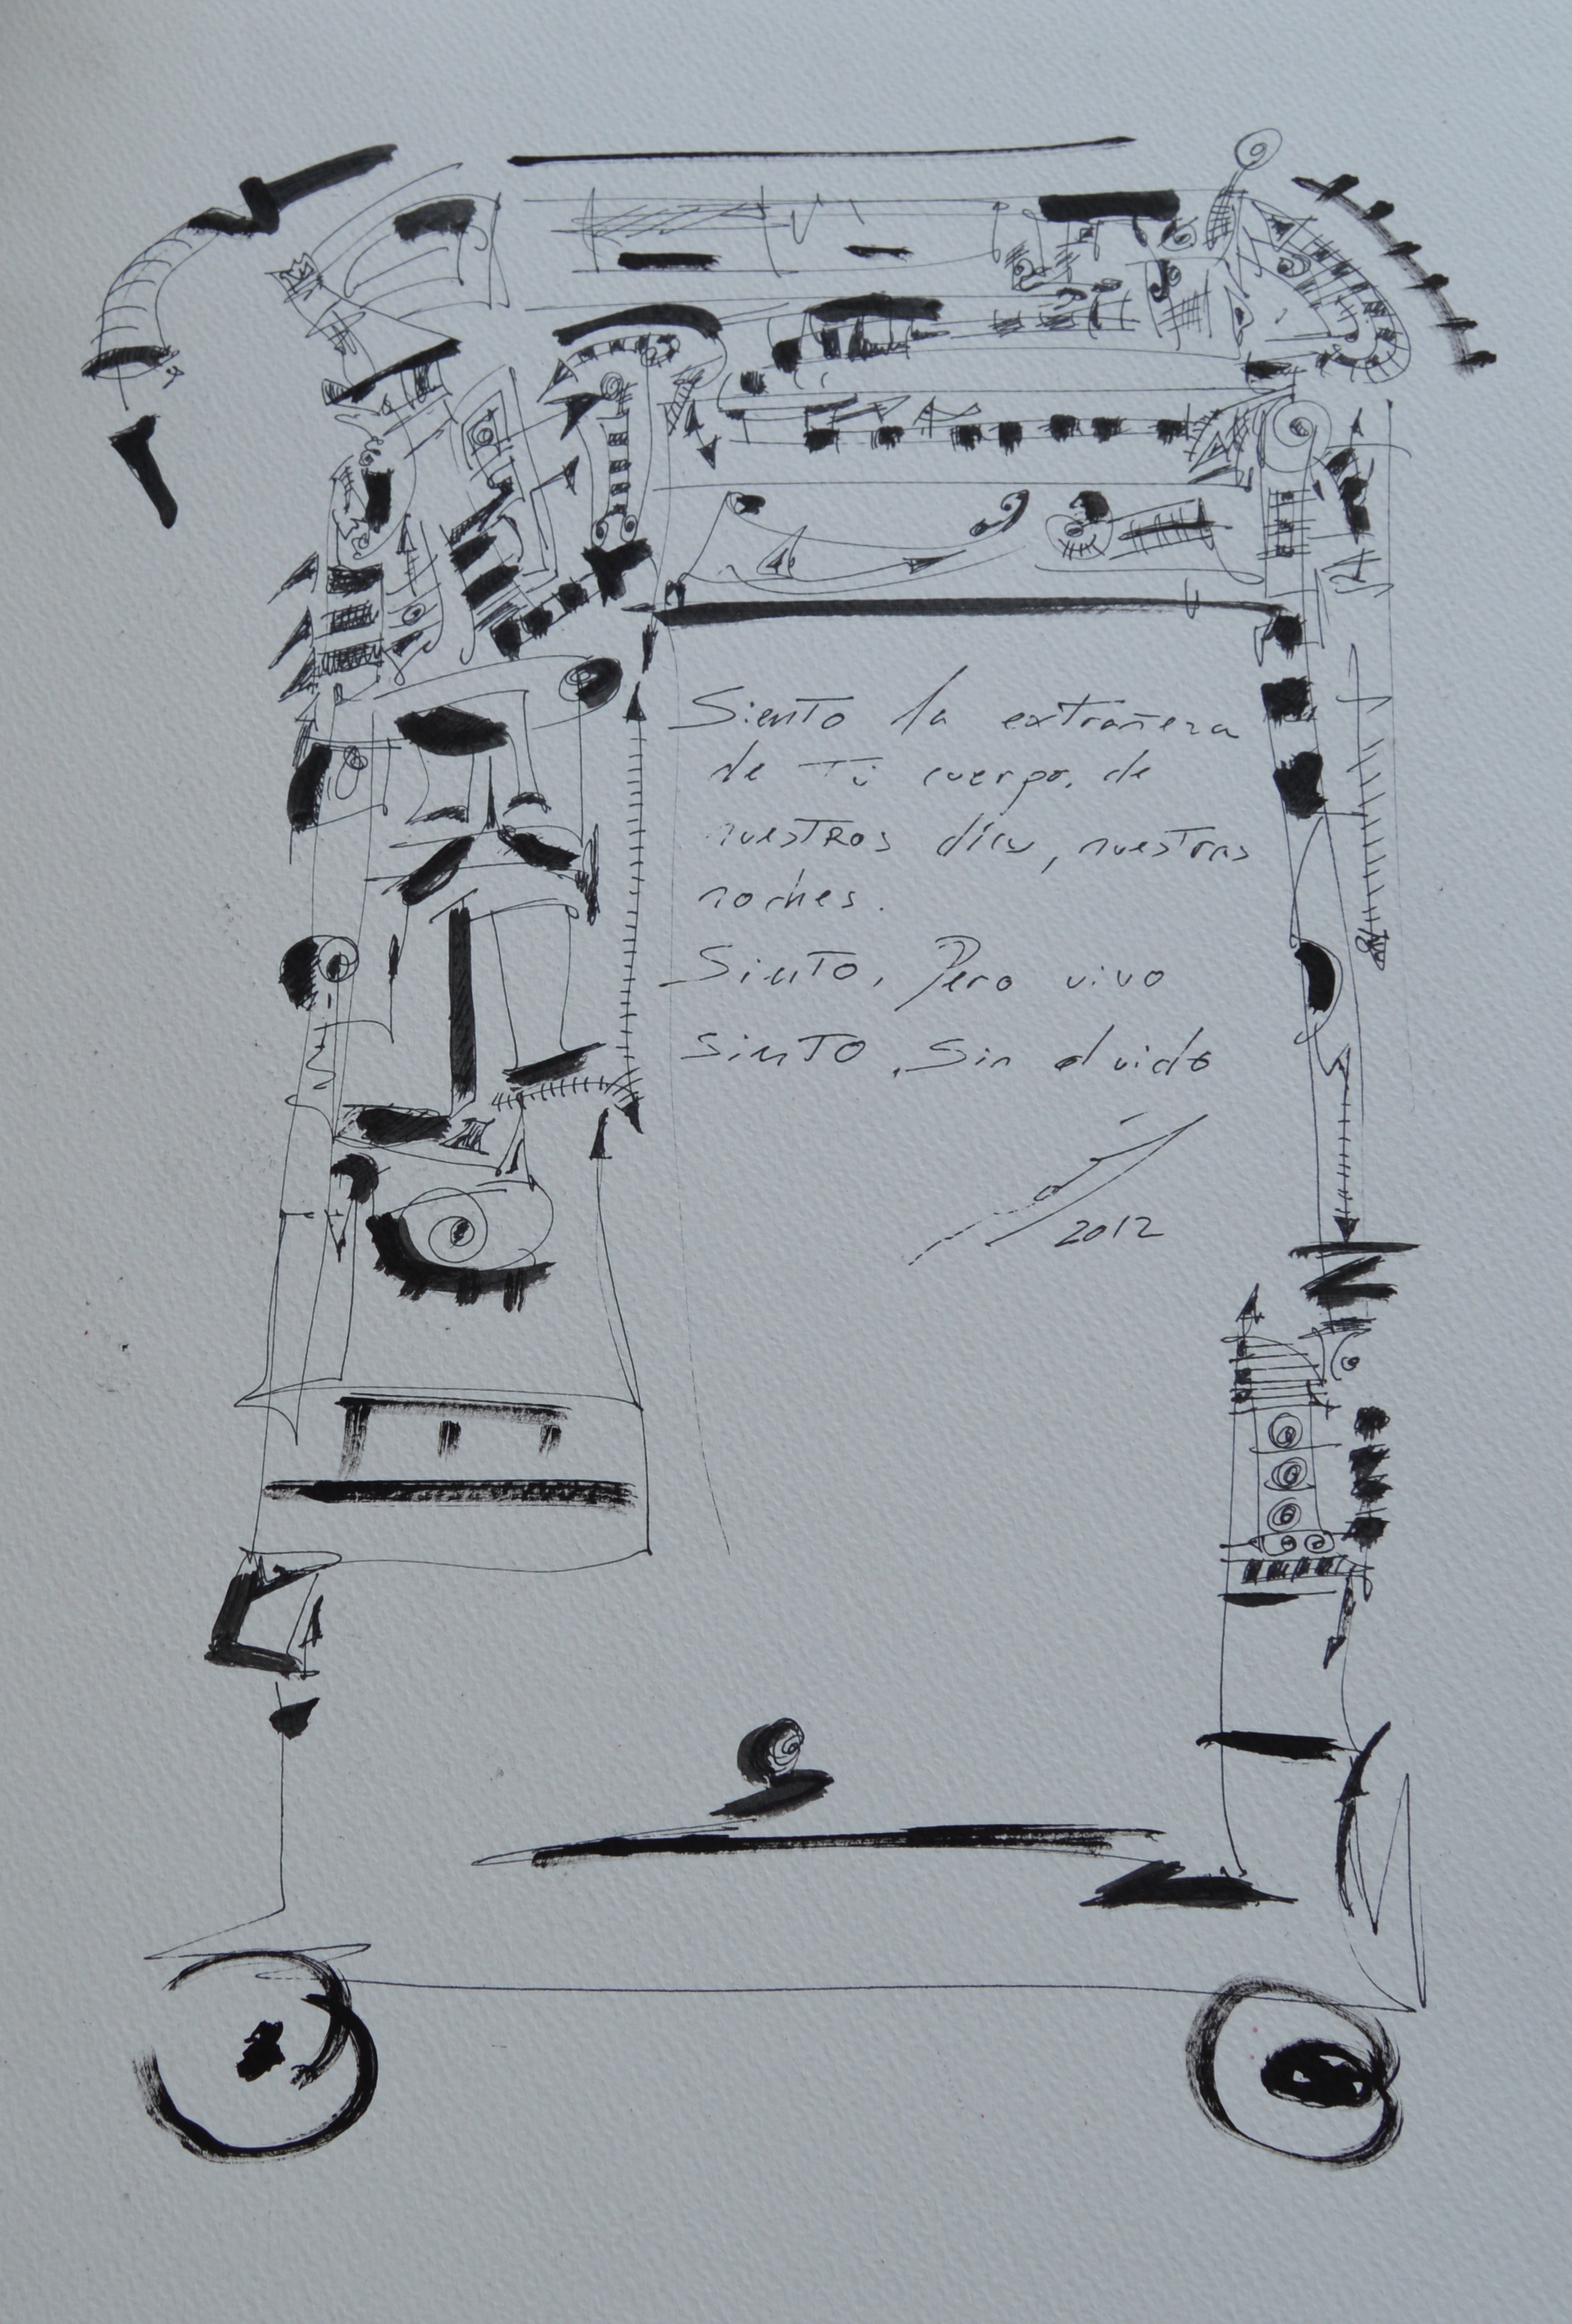 Siento la extrañeza
de Tu cuerpo, de
nuesTROS días, nuesTras
noches.
SienTO, Pero vivo
SienTO, Sin olvido
2012